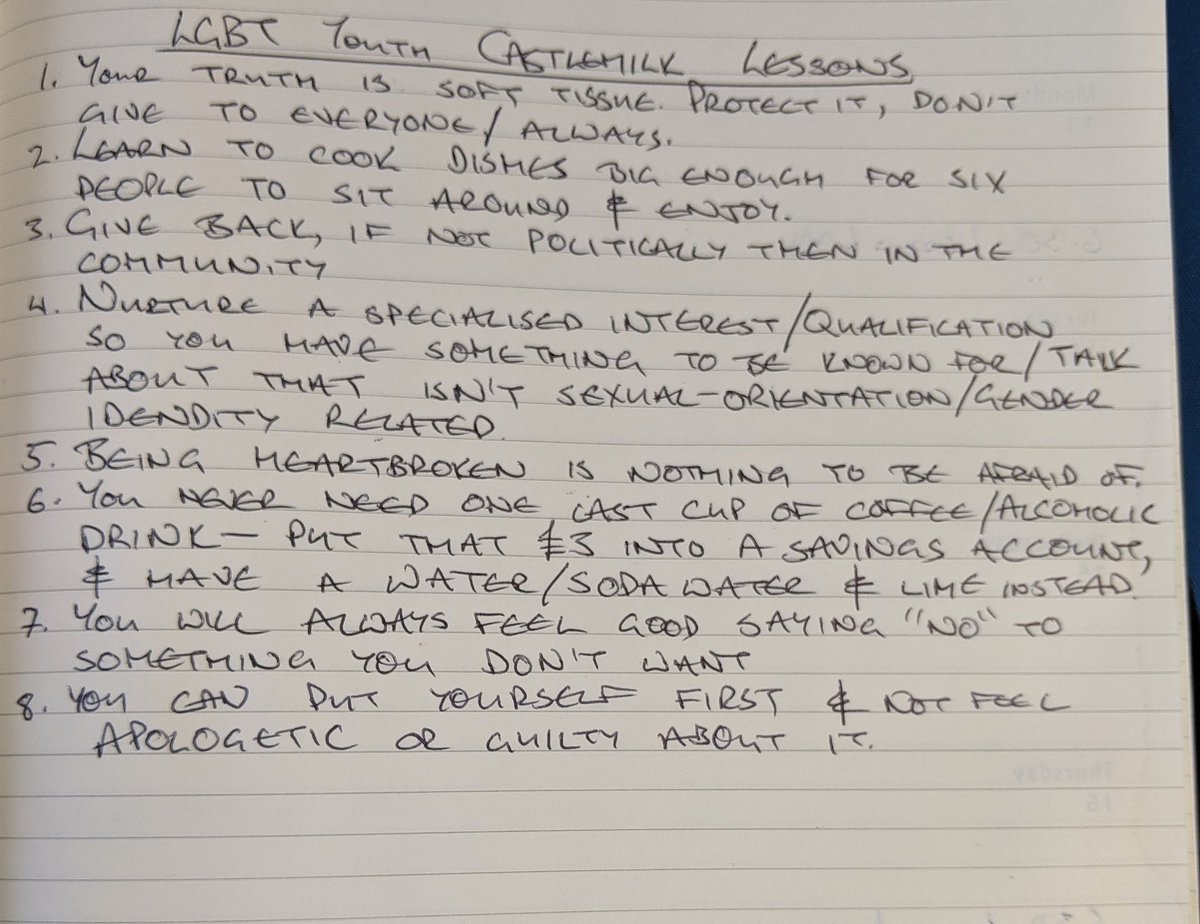 LGBT YOUTH CASTLEMILK LESSONS
1. YOUR TRUTH IS SOFT TISSUE. PROTECT IT, DON'T
GIVE TO EVERYONE/ALWAYS.
2. LEARN TO COOK DISHES BIG ENOUGH FOR SIX
PEOPLE TO SIT AROUND & ENJOY.
3. GIVE BACK, IF NOT POLITICALLY THEN IN THE
COMMUNITY
4. NURTURE A SPECIALISED INTEREST/QUALIFICATION
SO YOU HAVE SOMETHING TO BE KNOWN FOR/TALK
ABOUT THAT ISN'T SEXUAL-ORIENTATION/GENDER
IDENDITY RELATED.
5. BEING HEARTBROKEN IS NOTHING TO BE AFRAID OF.
6. YOU NEVER NEED ONE LAST CUP OF COFFEE/ALCOHOLIC
DRINK — PUT THAT £3 INTO A SAVINGS ACCOUNT,
& HAVE A WATER/SODA WATER & LIME INSTEAD.
7. YOU WILL ALWAYS FEEL GOOD SAYING "NO" TO
SOMETHING YOU DON'T WANT
8. YOU CAN PUT YOURSELF FIRST & NOT FEEL
APOLOGETIC OR GUILTY ABOUT IT.
Thursday
16